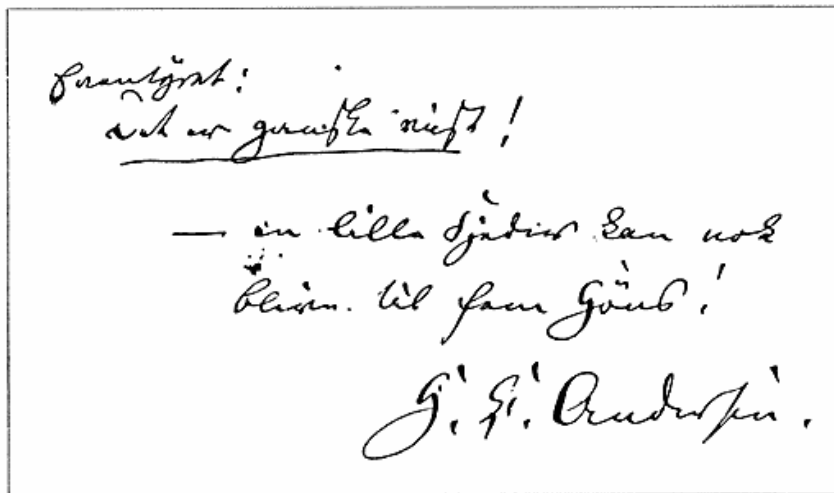 Eventyret:
Det er ganske vist!
— en lille Fjeder kan nok
blive til fem Höns!
H. C. Andersen.